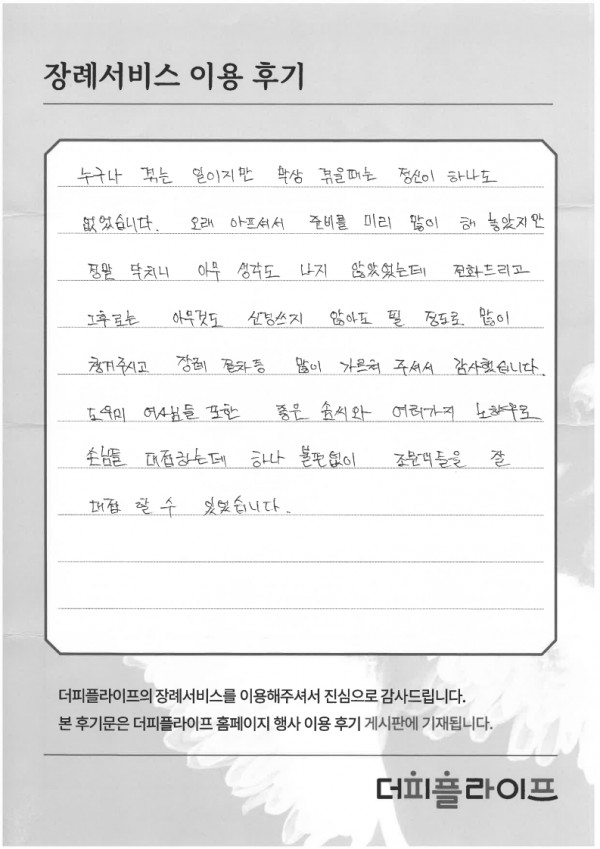 장례서비스 이용 후기
누구나 겪는 일이지만 막상 겪을때는 정신이 하나도
없었습니다. 오래 아프셔서 준비를 미리 많이 해 놓았지만
정말 닥치니 아무 생각도 나지 않았었는데 전화드리고
그후로는 아무것도 신경쓰지 않아도 될 정도로 많이
챙겨주시고 장례 절차등 많이 가르쳐 주셔서 감사했습니다.
도우미 여사님들 포함 좋은 솜씨와 여러가지 노하우로
손님들 대접하는데 하나 불편없이 조문객들을 잘
대접 할 수 있었습니다.
더피플라이프의 장례서비스를 이용해주셔서 진심으로 감사드립니다.
본 후기문은 더피플라이프 홈페이지 행사 이용 후기 게시판에 기재됩니다.
더피플라이프